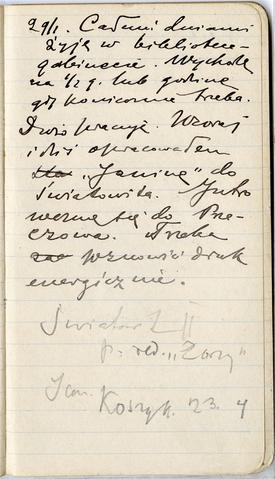 29/1. Całemi dniami
żyję w bibliotece-
gabinecie. Wychodzę
na 1/2 g. lub godzinę
gdy koniecznie trzeba.
Dużo pracuję. Wczoraj
i dziś opracowałem
"Janinę" do
Światowita. Jutro
wezmę się do Pse-
czowa. Trzeba
wznowić druk
energicznie.
Światow. II
p. red. "Zorzy"
Jan.
Koszyk. 23. 4